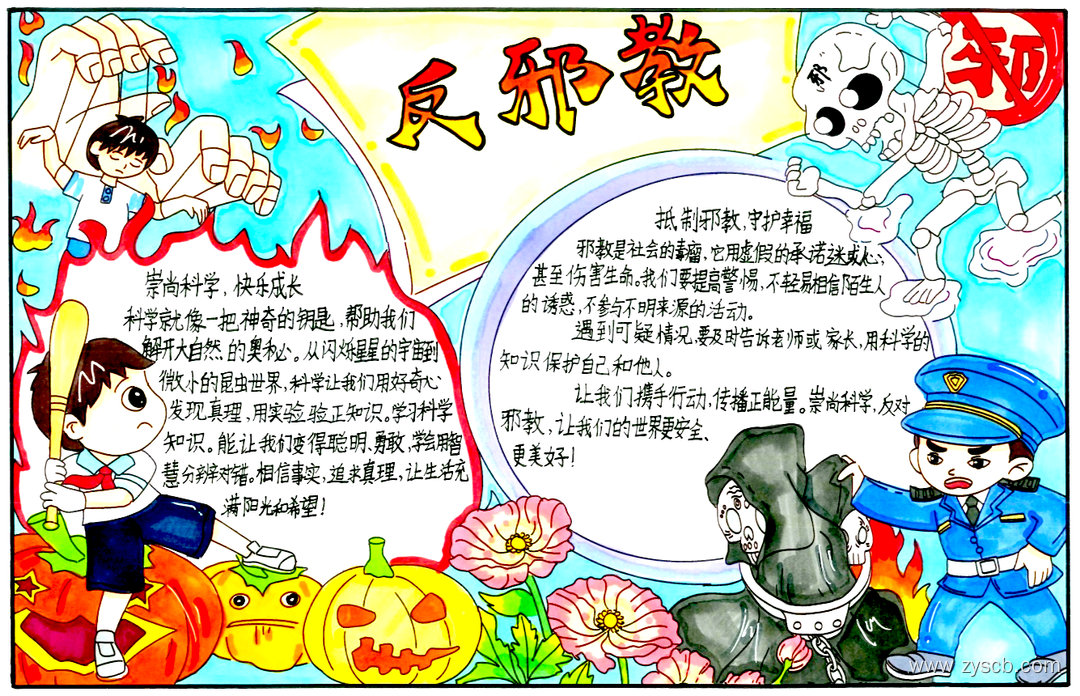 反邪教
邪
邪
崇尚科学，快乐成长
科学就像一把神奇的钥匙，帮助我们
解开大自然的奥秘。从闪烁星星的宇宙到
微小的昆虫世界，科学让我们用好奇心
发现真理，用实验验正知识。学习科学
知识。能让我们变得聪明、勇敢，学会用智
慧分辨对错。相信事实，追求真理，让生活充
满阳光和希望！
抵制邪教，守护幸福
邪教是社会的毒瘤，它用虚假的承诺迷惑人心，
甚至伤害生命。我们要提高警惕，不轻易相信陌生人
的诱惑，不参与不明来源的活动。
遇到可疑情况，要及时告诉老师或家长，用科学的
知识保护自己和他人。
让我们携手行动，传播正能量。崇尚科学，反对
邪教，让我们的世界更安全、
更美好！
www.zyscb.com